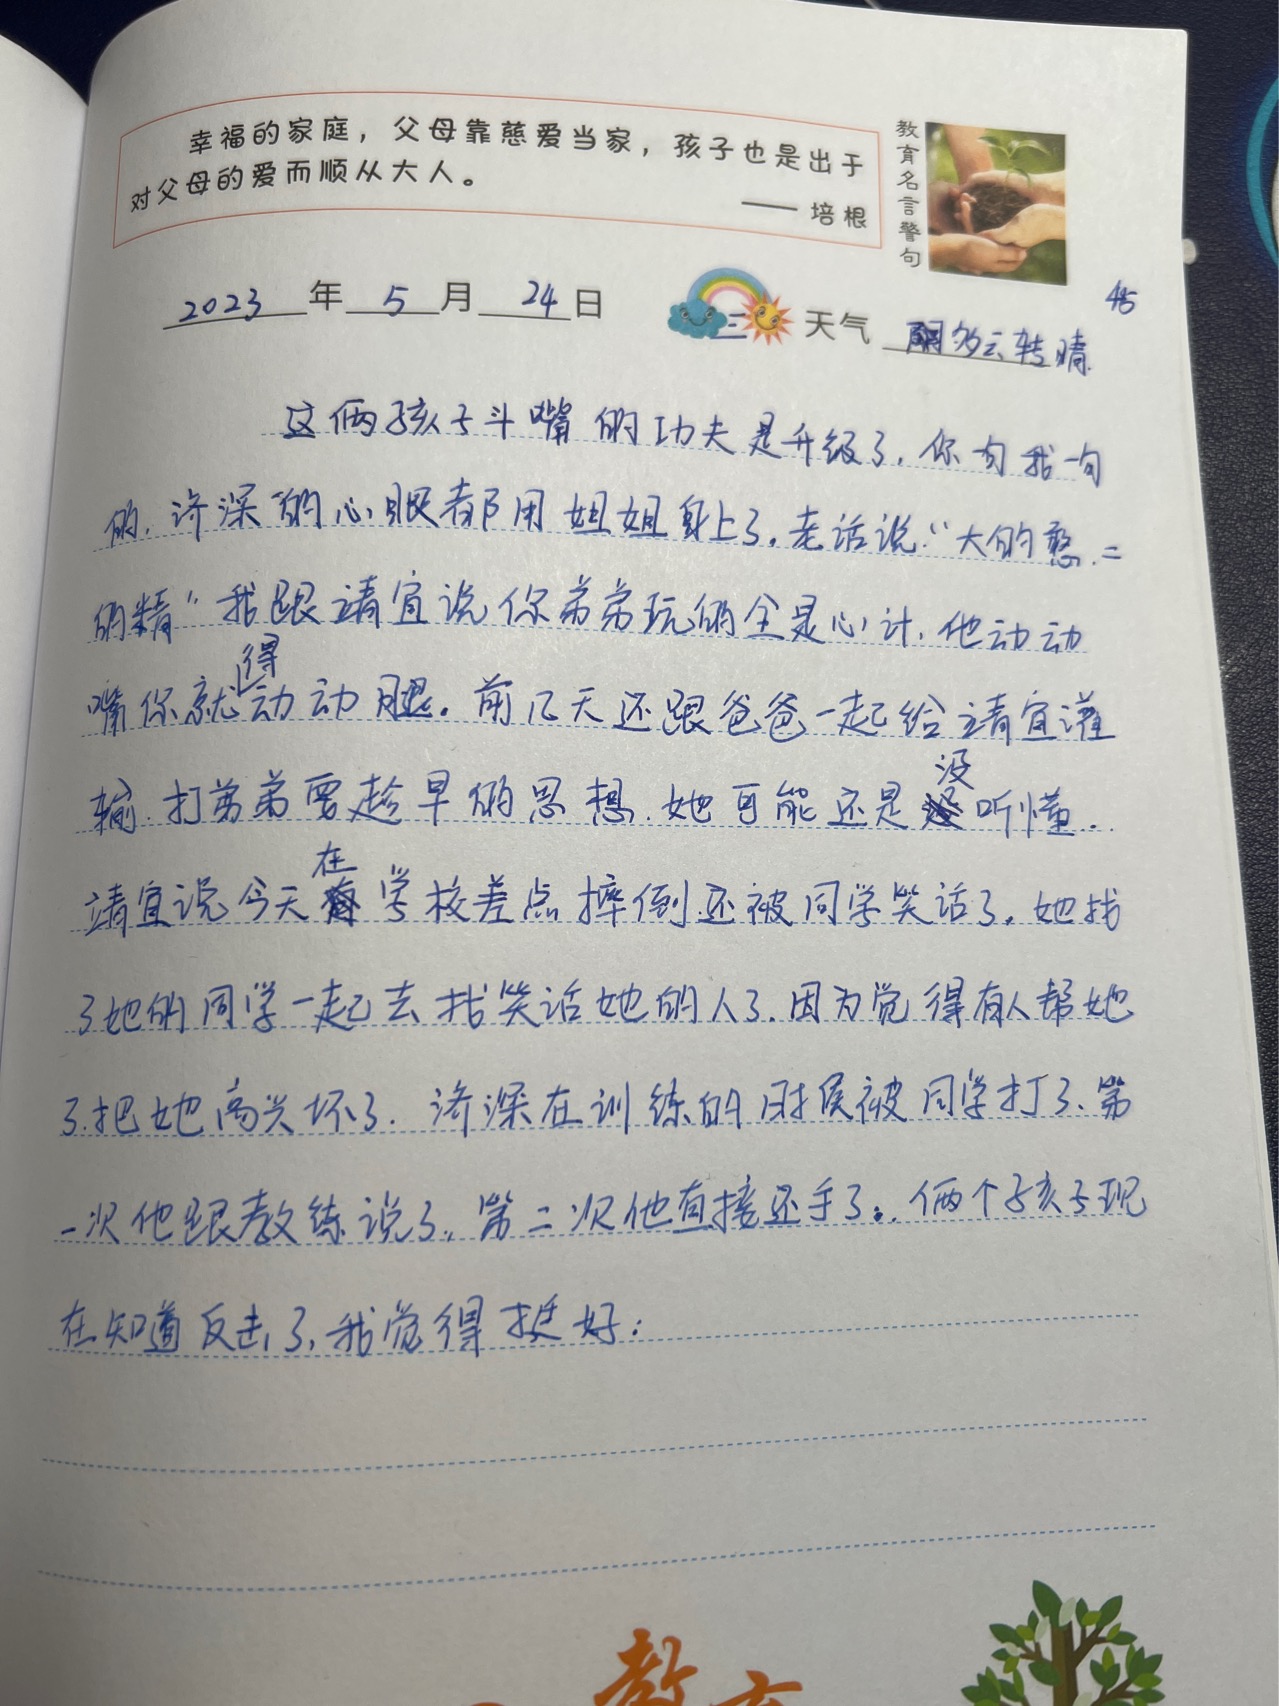 幸福的家庭，父母靠慈爱当家，孩子也是出于
对父母的爱而顺从大人。
—— 培根
教育名言警句
45
2023年5月24日 天气 多云转晴
这俩孩子斗嘴的功夫是升级了，你一句我一句
的，济深的心眼都用姐姐身上了，老话说："大的憨，二
的精"我跟靖宜说你弟弟玩的全是心计，他动动
嘴你就得动动腿。前几天还跟爸爸一起给靖宜灌
输，打弟弟要趁早的思想，她可能还是没听懂．
靖宜说今天在学校差点摔倒还被同学笑话了，她找
了她的同学一起去找笑话她的人了，因为觉得有人帮她
了，把她高兴坏了．济深在训练的时候被同学打了，第
一次他跟教练说了，第二次他直接还手了．俩个孩子现
在知道反击了，我觉得挺好；
教育